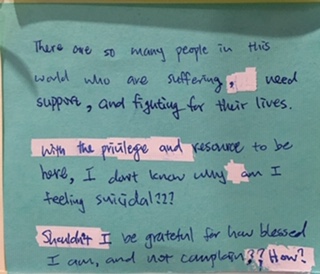 There are so many people in this
world who are suffering, need
support, and fighting for their lives.
With the privilege and resource to be
here, I don't know why am I
feeling suicidal???
Shouldn't I be grateful for how blessed
I am, and not complain?? How?